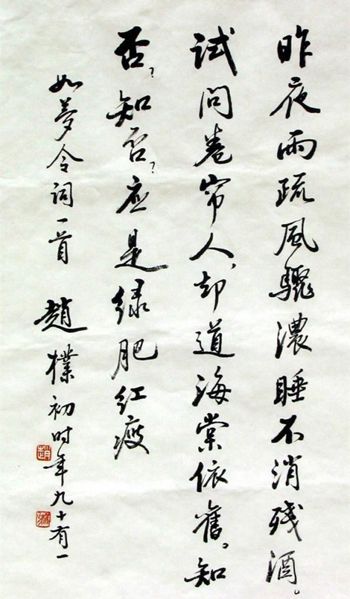 昨夜雨疏风骤浓睡不消残酒。
试问卷帘人,却道海棠依旧。知
否?知否?应是绿肥红瘦
如夢令词一首 趙樸初时年九十有一